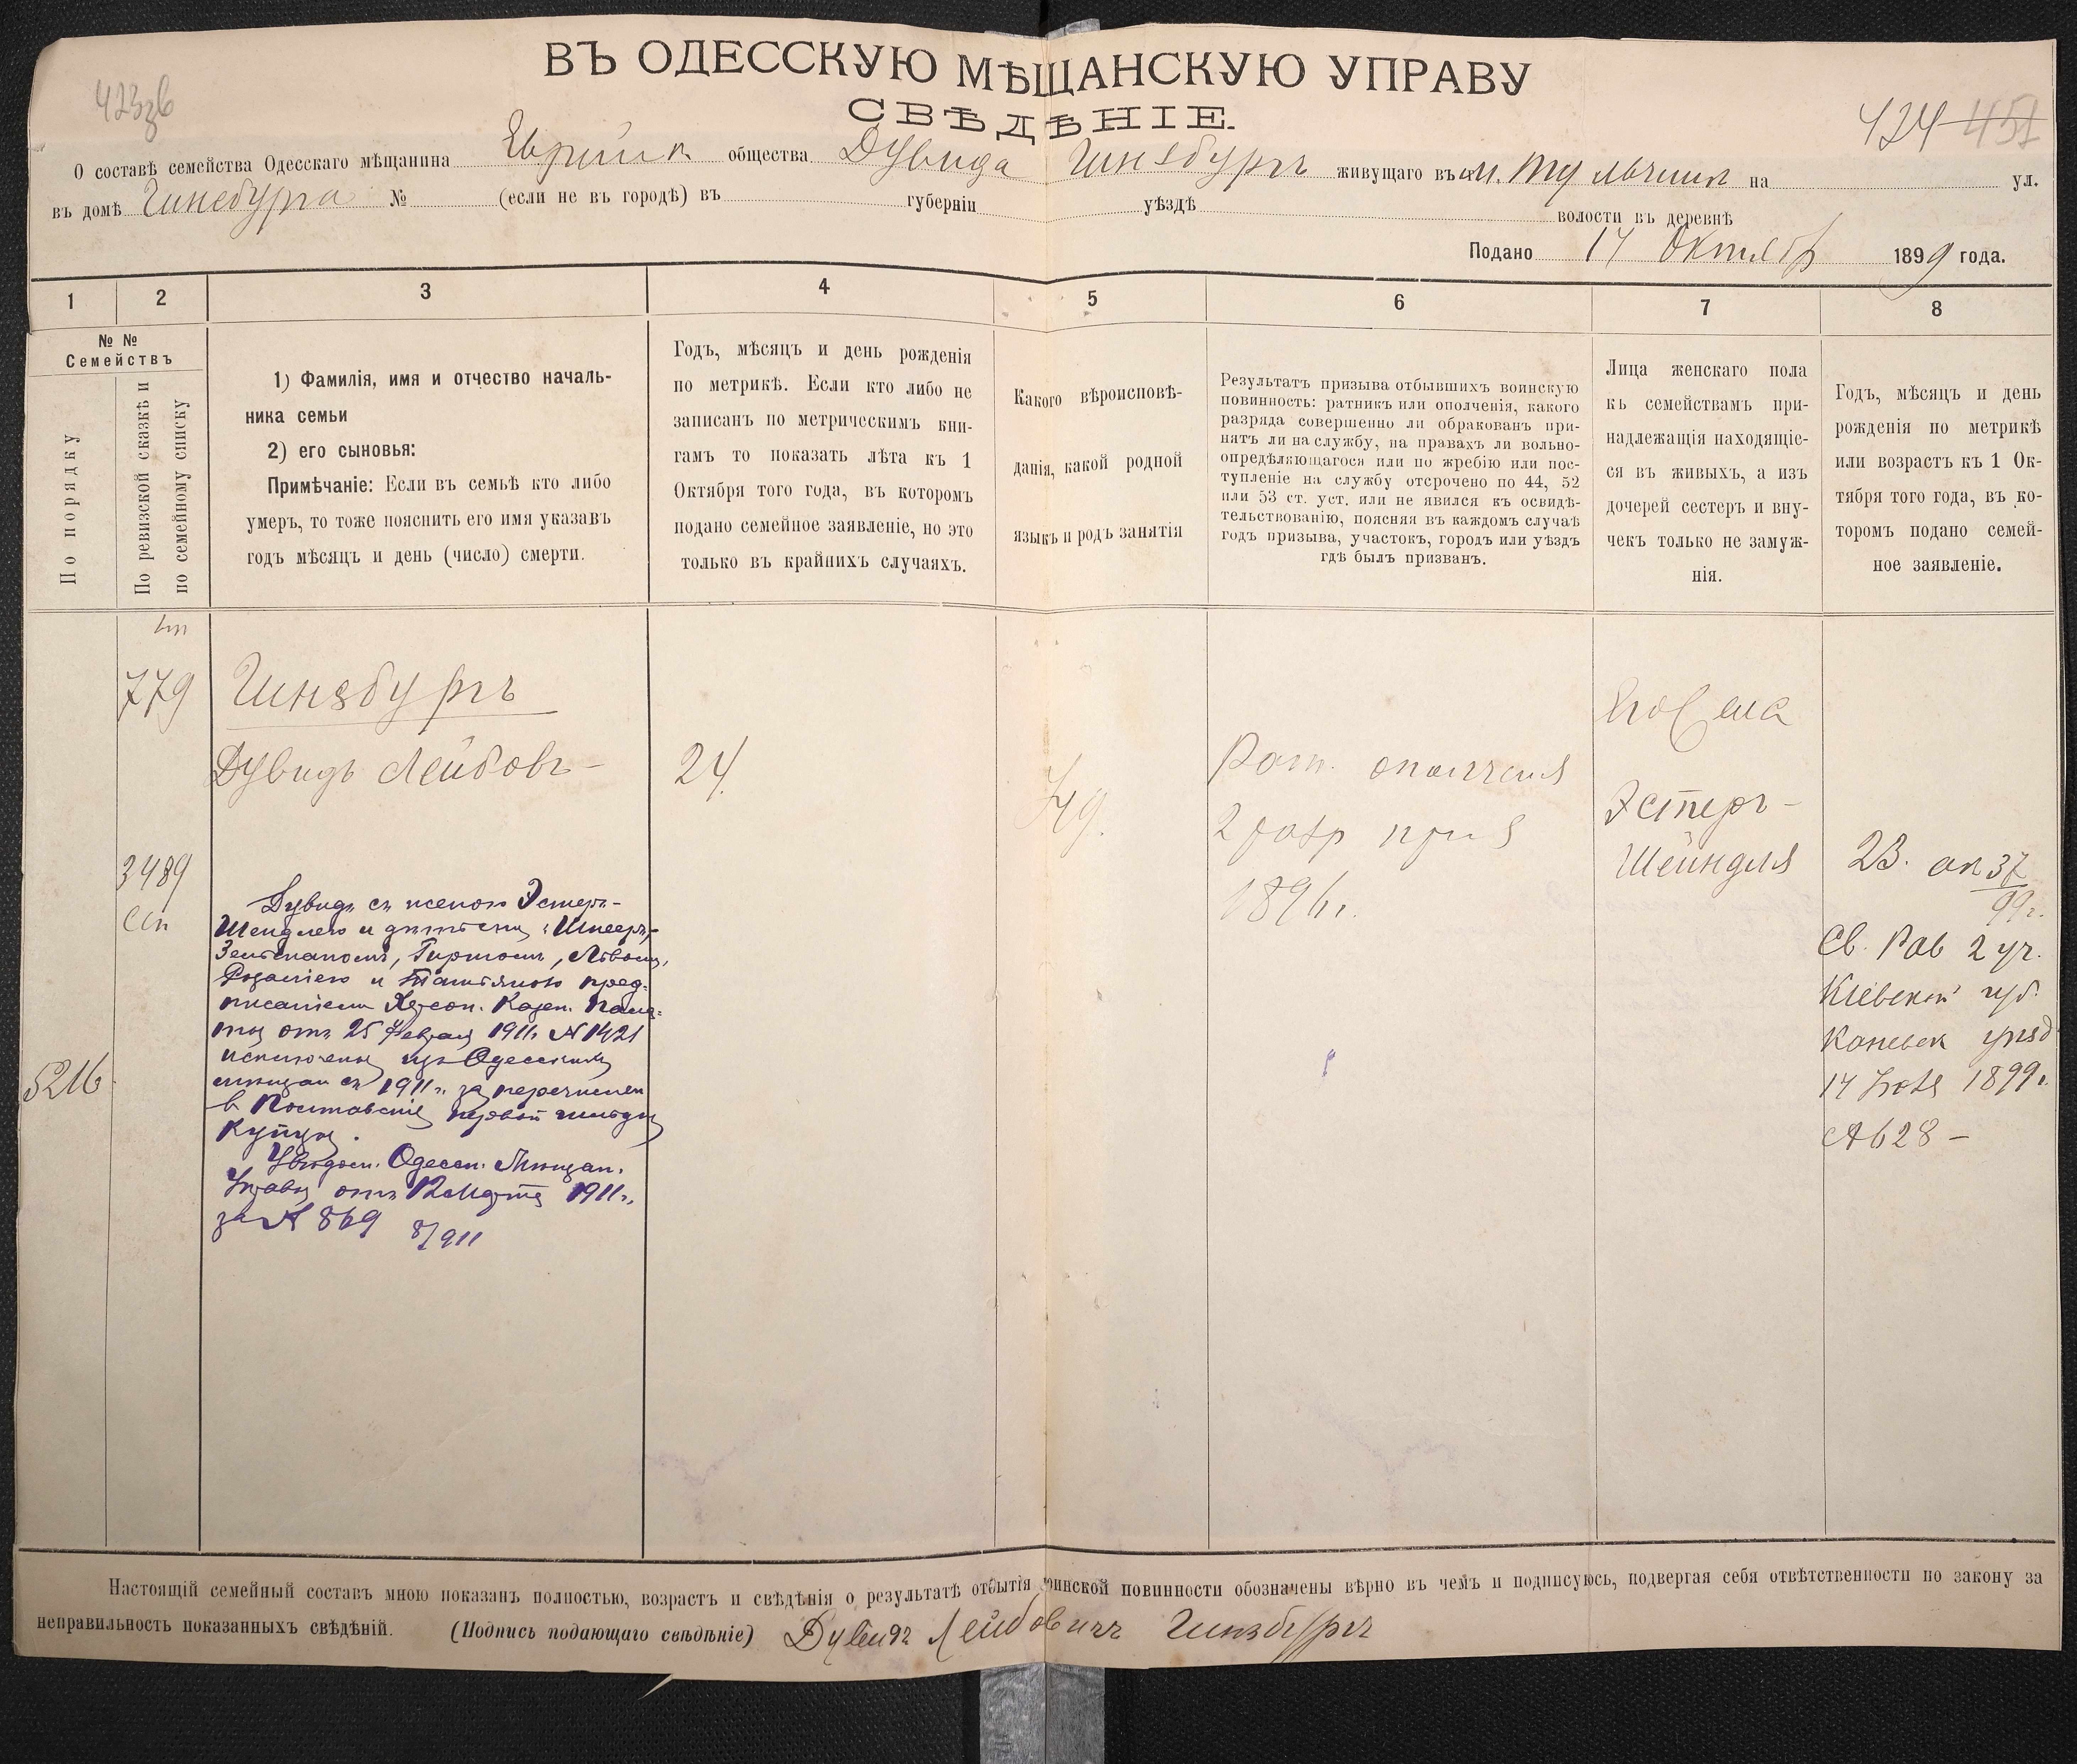 ВЪ ОДЕССКУЮ МѢЩАНСКУЮ УПРАВУ
СВѢДѢНІЕ.
423зв
424 451
О составѣ семейства Одесскаго мѣщанина общества Дувида Гинзбургъ живущаго въ м. Тульчинъ на ул.
въ домѣ Гинсбурга № (если не въ городѣ) въ губерніи уѣздѣ волости въ деревнѣ
Подано 14 Октябр 1899 года.
1 2 3 4 5 6 7 8
№ №
Семействъ
По порядку
По ревизской сказкѣ и
по семейному списку
1) Фамилія, имя и отчество началь-
ника семьи
2) его сыновья:
Примѣчаніе: Если въ семьѣ кто либо
умеръ, то тоже пояснить его имя указавъ
годъ мѣсяцъ и день (число) смерти.
Годъ, мѣсяцъ и день рожденія
по метрикѣ. Если кто либо не
записанъ по метрическимъ кни-
гамъ то показать лѣта къ 1
Октября того года, въ которомъ
подано семейное заявленіе, но это
только въ крайнихъ случаяхъ.
Какого вѣроисповѣ-
данія, какой родной
языкъ и родъ занятія
Результатъ призыва отбывшихъ воинскую
повинность: ратникъ или ополченія, какого
разряда совершенно ли обракованъ при-
нятъ ли на службу, на правахъ ли вольно-
опредѣляющагося или по жребію или пос-
тупленіе на службу отсрочено по 44, 52
или 53 ст. уст. или не явился къ освидѣ-
тельствованію, поясняя въ каждомъ случаѣ
годъ призыва, участокъ, городъ или уѣздъ
гдѣ былъ призванъ.
Лица женскаго пола
къ семействамъ при-
надлежащія находящіе-
ся въ живыхъ, а изъ
дочерей сестеръ и вну-
чекъ только не замуж-
нія.
Годъ, мѣсяцъ и день
рожденія по метрикѣ
или возрастъ къ 1 Ок-
тября того года, въ ко-
торомъ подано семей-
ное заявленіе.
779
Гинзбургъ
Дувидъ Лейбовъ-
24.
Рат. ополченія
2 разр
1896 г.
Эстеръ-
Шейндля
23.
37
99 г.
Св. Рав 2 уч.
Кіевской губ.
Каневск уѣзд
1899 г.
№ 628 –
3489
5216
Дувидъ съ женою Эстеръ-
Шендлею и дѣтьми:
Гиршомъ, Львомъ,
Розаліею и Татьяною пред-
писаніемъ Херсон. Казен. Пала-
ты отъ 25 Февраля 1911 г. № 1421
исключены изъ Одесскихъ
мѣщан съ 1911 г. за перечислен
в первой гильдіи
купцы.
Увѣдом. Одесск. Мѣщан.
Управы отъ 12 Марта 1911 г.
за № 869 8/911
Настоящій семейный составъ мною показанъ полностью, возрастъ и свѣдѣнія о результатѣ отбытія воинской повинности обозначены вѣрно въ чемъ и подписуюсь, подвергая себя отвѣтственности по закону за
неправильность показанныхъ свѣдѣній. (Подпись подающаго свѣдѣніе) Дувидъ Лейбовичъ Гинзбургъ